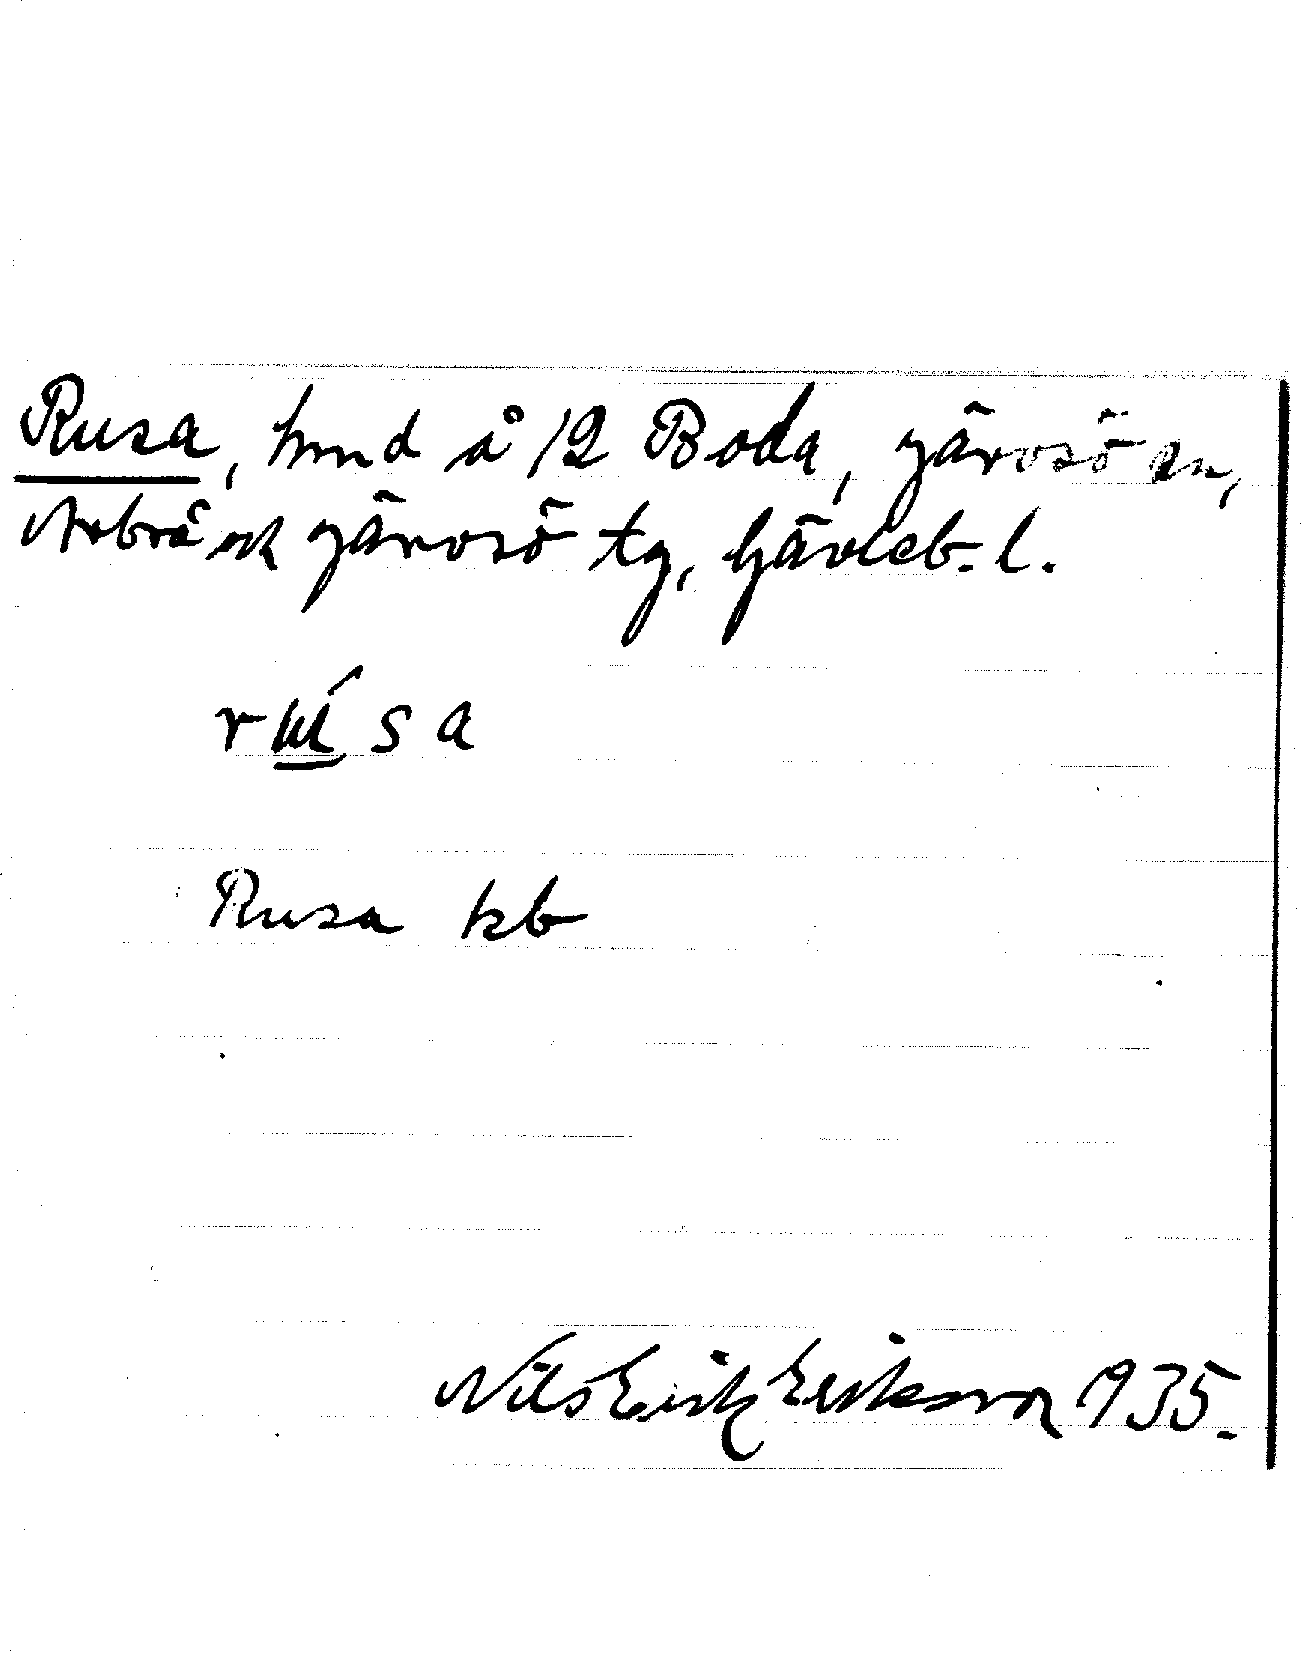 Rusa, hmd å 12 Boda, Järvsö sn,
Arbrå och Järvsö tg, Gävleb. l.
rúsa
Rusa kb
Nils Erik Eriksson 1935.